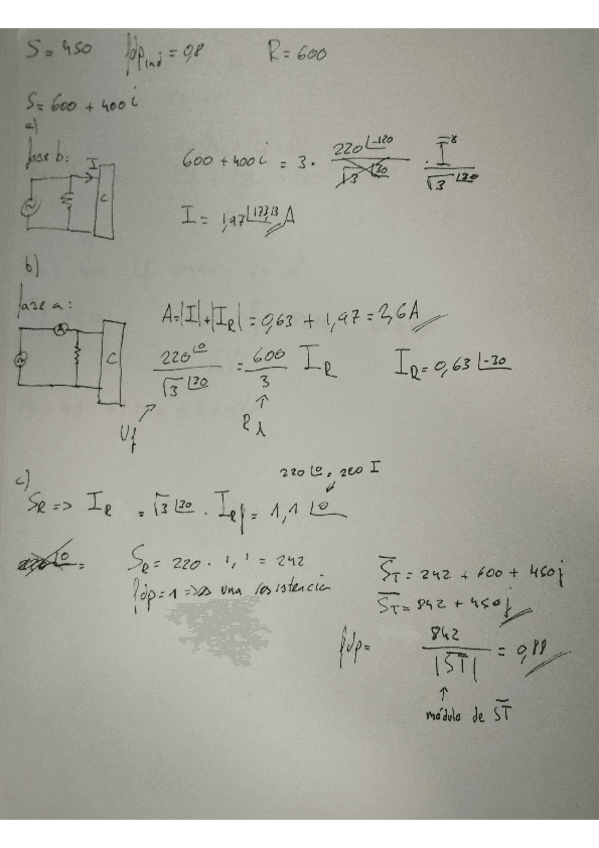 S = 450 fdp ind = 0,8 R = 600
S = 600 + 400i
a)
fase b: I
C
600 + 400i = 3 · 220∟-120 / √3∟30 · I* / √3∟30
I = 1,97∟173,13 A
b)
fase a:
A
C
A = |I| + |I_R| = 0,63 + 1,97 = 2,6 A
220∟0 / √3∟30 = 600 / 3 I_R I_R = 0,63∟-30
↑ ↑
Uf R
c)
220∟0 · 220 I
S_R => I_R = √3∟30 · I_Rf = 1,1∟0
S_R = 220 · 1,1 = 242
fdp = 1 => es una resistencia
S_T = 242 + 600 + 450j
S_T = 842 + 450j
fdp = 842 / |ST| = 0,88
↑
módulo de ST